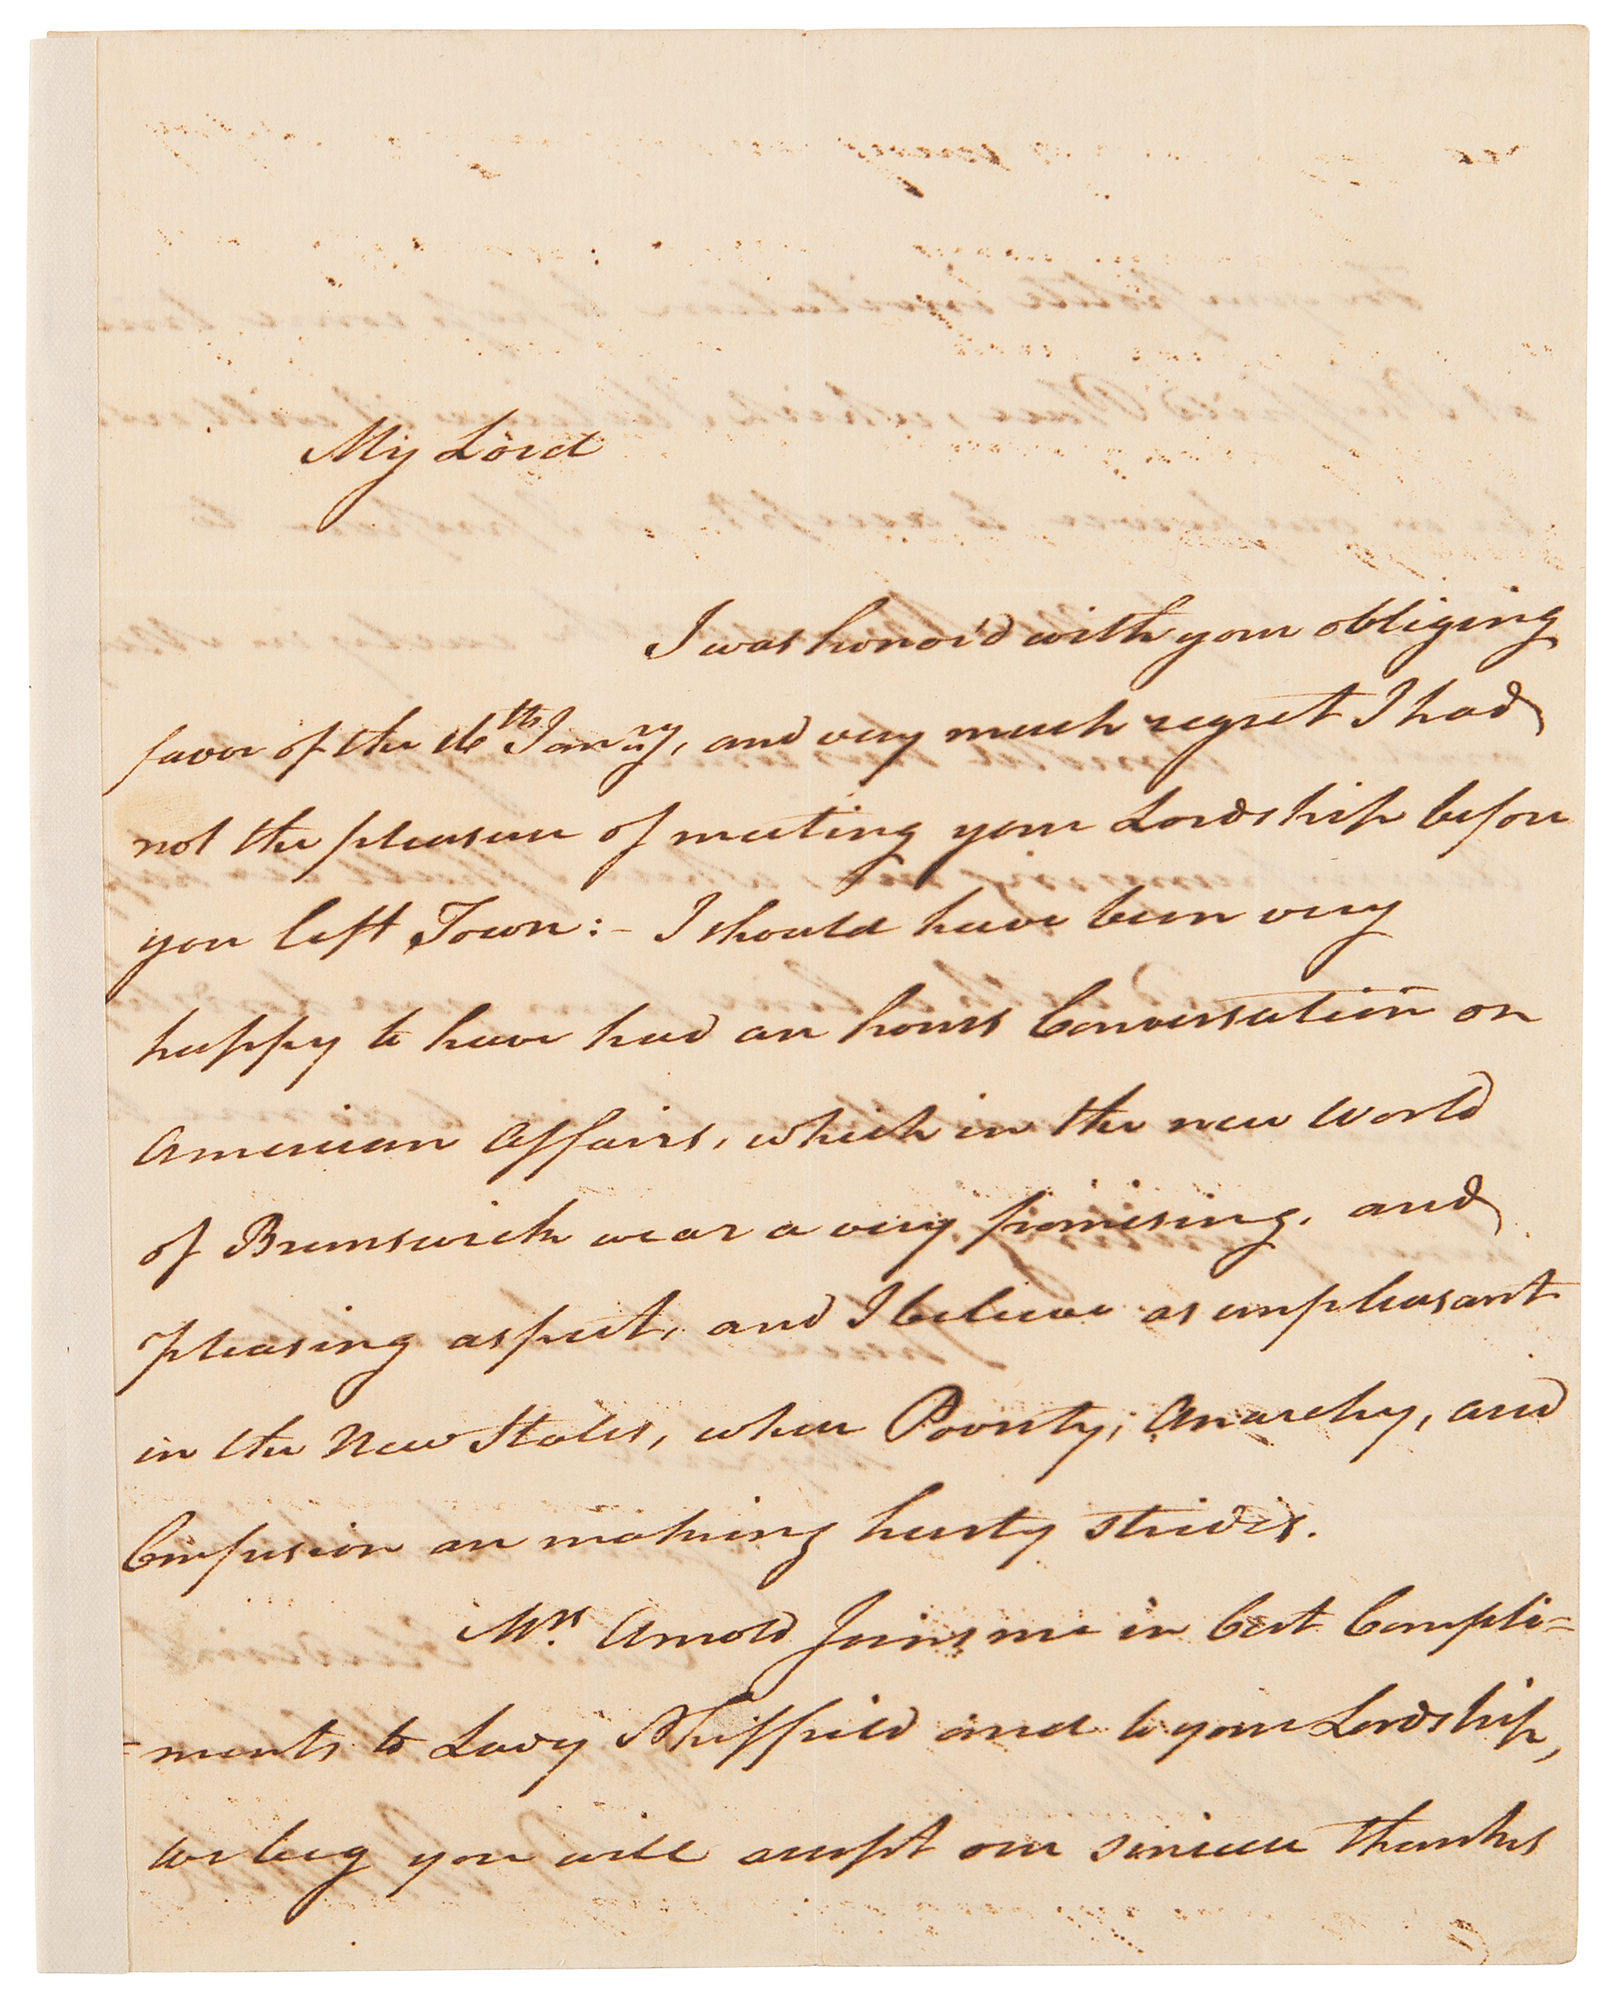 My Lord
I was honor'd with your obliging
favor of the 16th Janry, and very much regret I had
not the pleasure of meeting your Lordship before
you left Town:- I should have been very
happy to have had an hours Conversation on
American Affairs, which in the new World
of Brunswick wear a very promising, and
pleasing aspect, and I believe as unpleasant
in the New States, where Poverty, Anarchy, and
Confusion are making hasty strides.
Mrs. Arnold Joins me in best Compli=
=ments to Lady Sheffield and to your Lordship,
we beg you will accept our sincere thanks